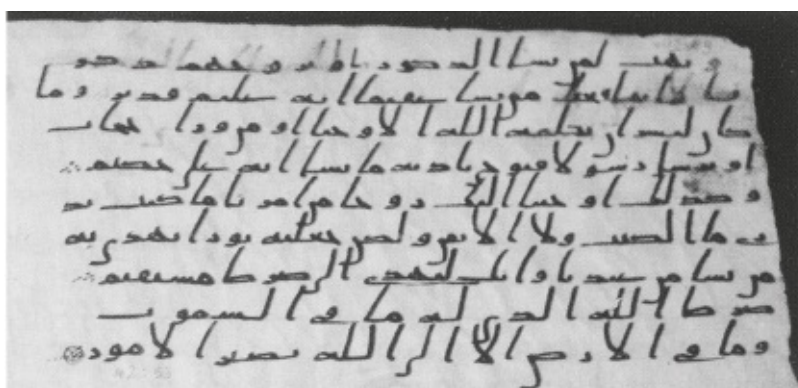 و يهب لمن يشا الذكور او يزوجهم ذكر
نا وانثا ويجعل من يشا عقيما انه عليم قدير وما
كان لبشر ان يكلمه الله الا وحيا او من ورا حجاب
او يرسل رسولا فيوحي باذنه ما يشا انه علي حكيم
وكذلك اوحينا اليك روحا من امرنا ما كنت تد
ري ما الكتب ولا الايمن ولكن جعلنه نورا نهدي به
من نشا من عبدنا وانك لتهدي الى صرط مستقيم
صرط الله الذي له ما في السموت
وما في الارض الا الى الله تصير الامور